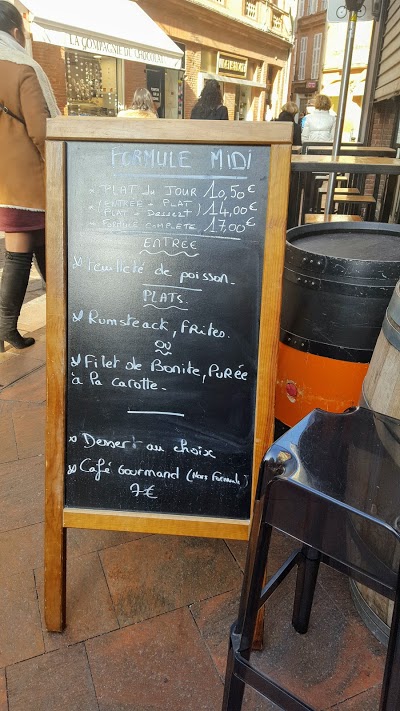 LA COMPAGNIE DU CHOCOLAT
FORMULE MIDI
* PLAT du JOUR 10,50€
* (ENTRÉE + PLAT
(PLAT + Dessert) 14,00€
* FORMULE COMPLETE 17,00€
ENTRÉE
* Feuilleté de poisson.
PLATS.
* Rumsteack, FRites.
OU
* Filet de Bonite, PuRÉe
à la carotte.
* Dessert au choix
* Café Gourmand (Hors Formule)
7€